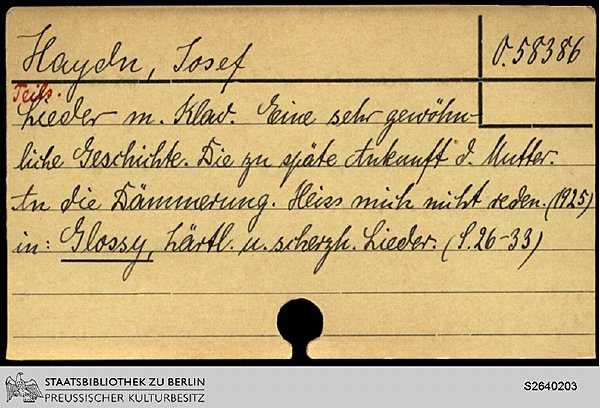 Haydn, Josef
O. 58386
Teils.
Lieder m. Klav. Eine sehr gewöhn-
liche Geschichte. Die zu späte Ankunft d. Mutter.
An die Dämmerung. Heiss mich nicht reden. (1925)
in: Glossy, zärtl. u. scherzh. Lieder. (S. 26-33)
STAATSBIBLIOTHEK ZU BERLIN
PREUSSISCHER KULTURBESITZ
S2640203